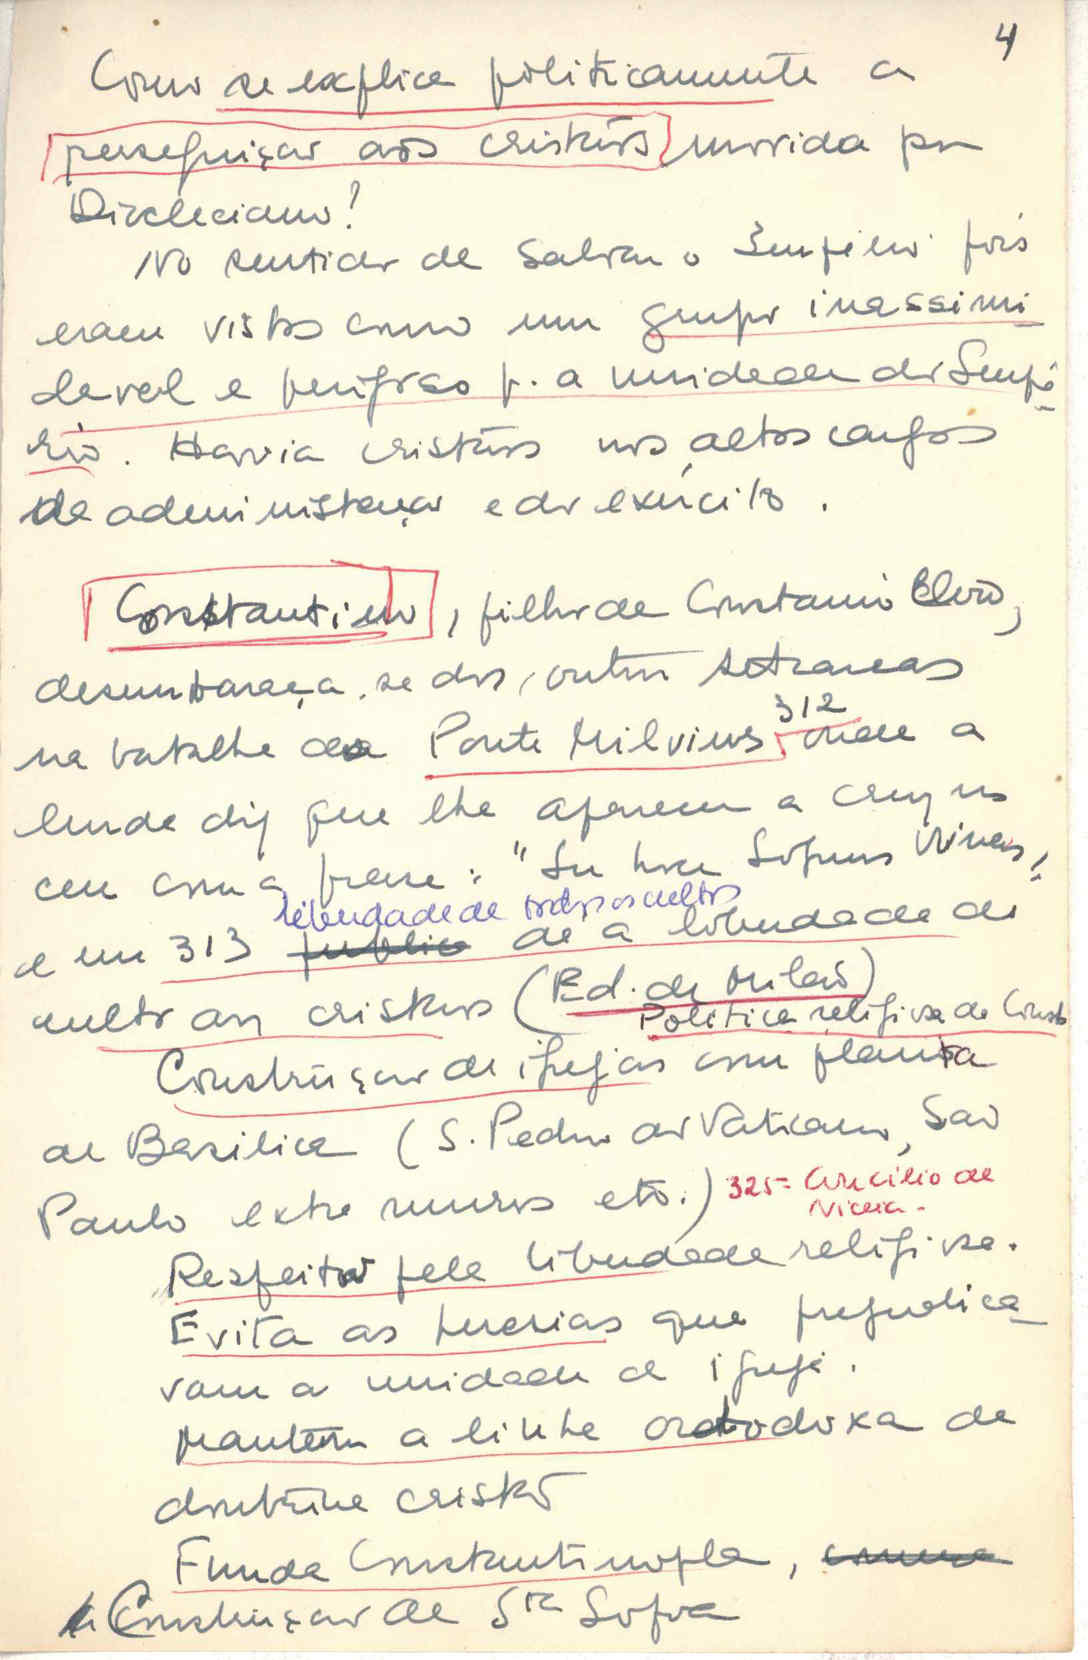 4
Como se explica politicamente a
perseguição aos cristãos movida por
Diocleciano?
No sentido de salvar o Império pois
eram vistos como um grupo inassimi
lavel e perigoso p. a unidade do Impé
rio. Havia cristãos nos altos cargos
de administração e do exército.
Constantino, filho de Constancio Cloro,
desembaraça-se dos outros tetrarcas
na batalha da Ponte Milvius 312 onde a
lenda diz que lhe apareceu a cruz no
ceu com a frase: "In hoc Signus Vinces,
liberdade de todos os cultos
e em 313 publica da a liberdade de
culto aos cristãos (Ed. de Milão)
Politica religiosa de Const
Construção de igrejas com planta
de Basilica (S. Pedro do Vaticano, São
Paulo extra muros etc.) 325 = Concilio de
Niceia.
Respeito pela liberdade religiosa.
Evita as heresias que prejudica
vam a unidade da igreja.
Mantem a linha ortodoxa da
doutrina cristã
Funda Constantinopla,
Construção de Sta Sofia